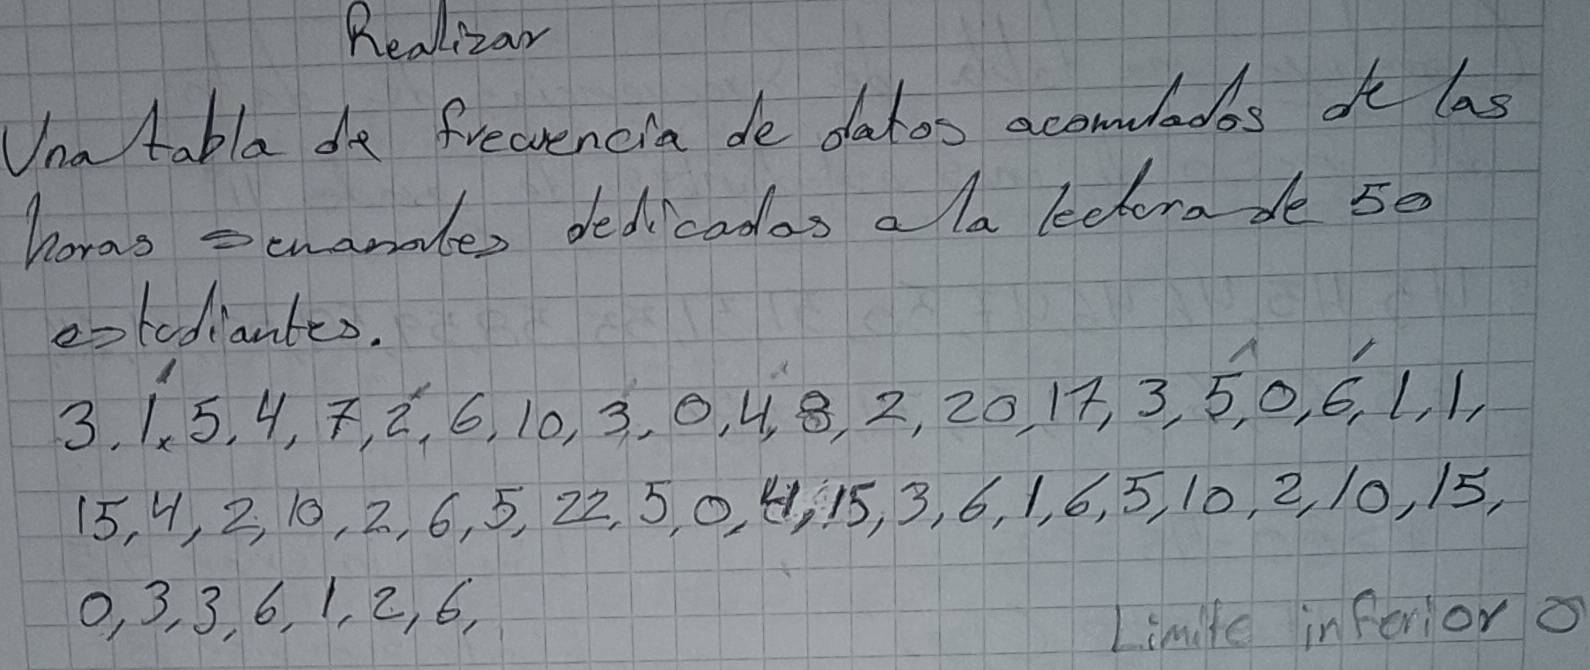 Realizar
Una tabla de frecuencia de datos acomulados de las
horas semanales dedicadas a la lectura de 50
estudiantes.
3, 1, 5, 4, 7, 2, 6, 10, 3, 0, 4, 8, 2, 20, 17, 3, 5, 0, 6, 1, 1,
15, 4, 2, 10, 2, 6, 5, 22, 5, 0, 4, 15, 3, 6, 1, 6, 5, 10, 2, 10, 15,
0, 3, 3, 6, 1, 2, 6,
Limite inferior 0